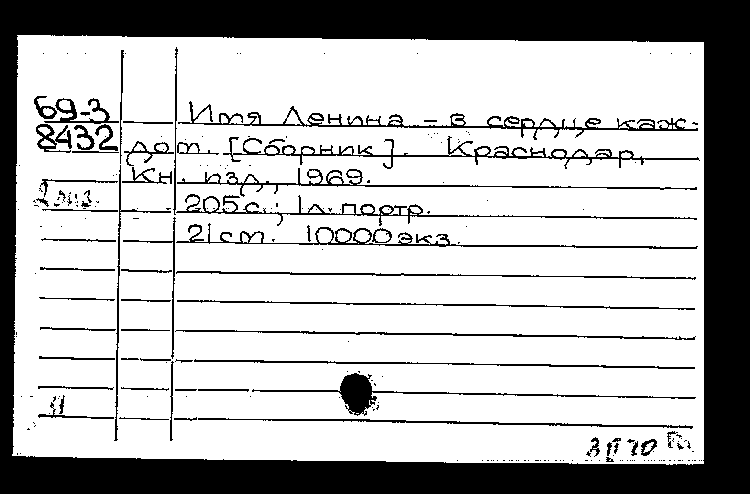 Б9-3 Имя Ленина – в сердце каж-
8432 дом. [Сборник]. Краснодар,
Кн. изд., 1969.
2 экз. 205 с.; 1 л. портр.
21 см. 10000 экз.
11
3 II 70